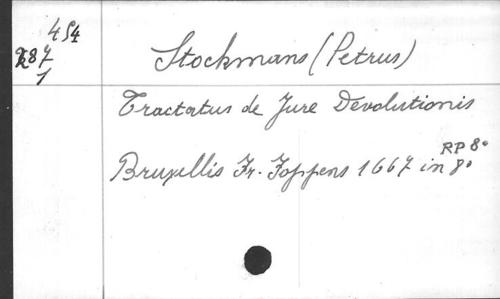 454
287
1
Stockmans (Petrus)
Tractatus de Jure Devolutionis
RP 8°
Bruxellis Fr. Foppens 1667 in 8°